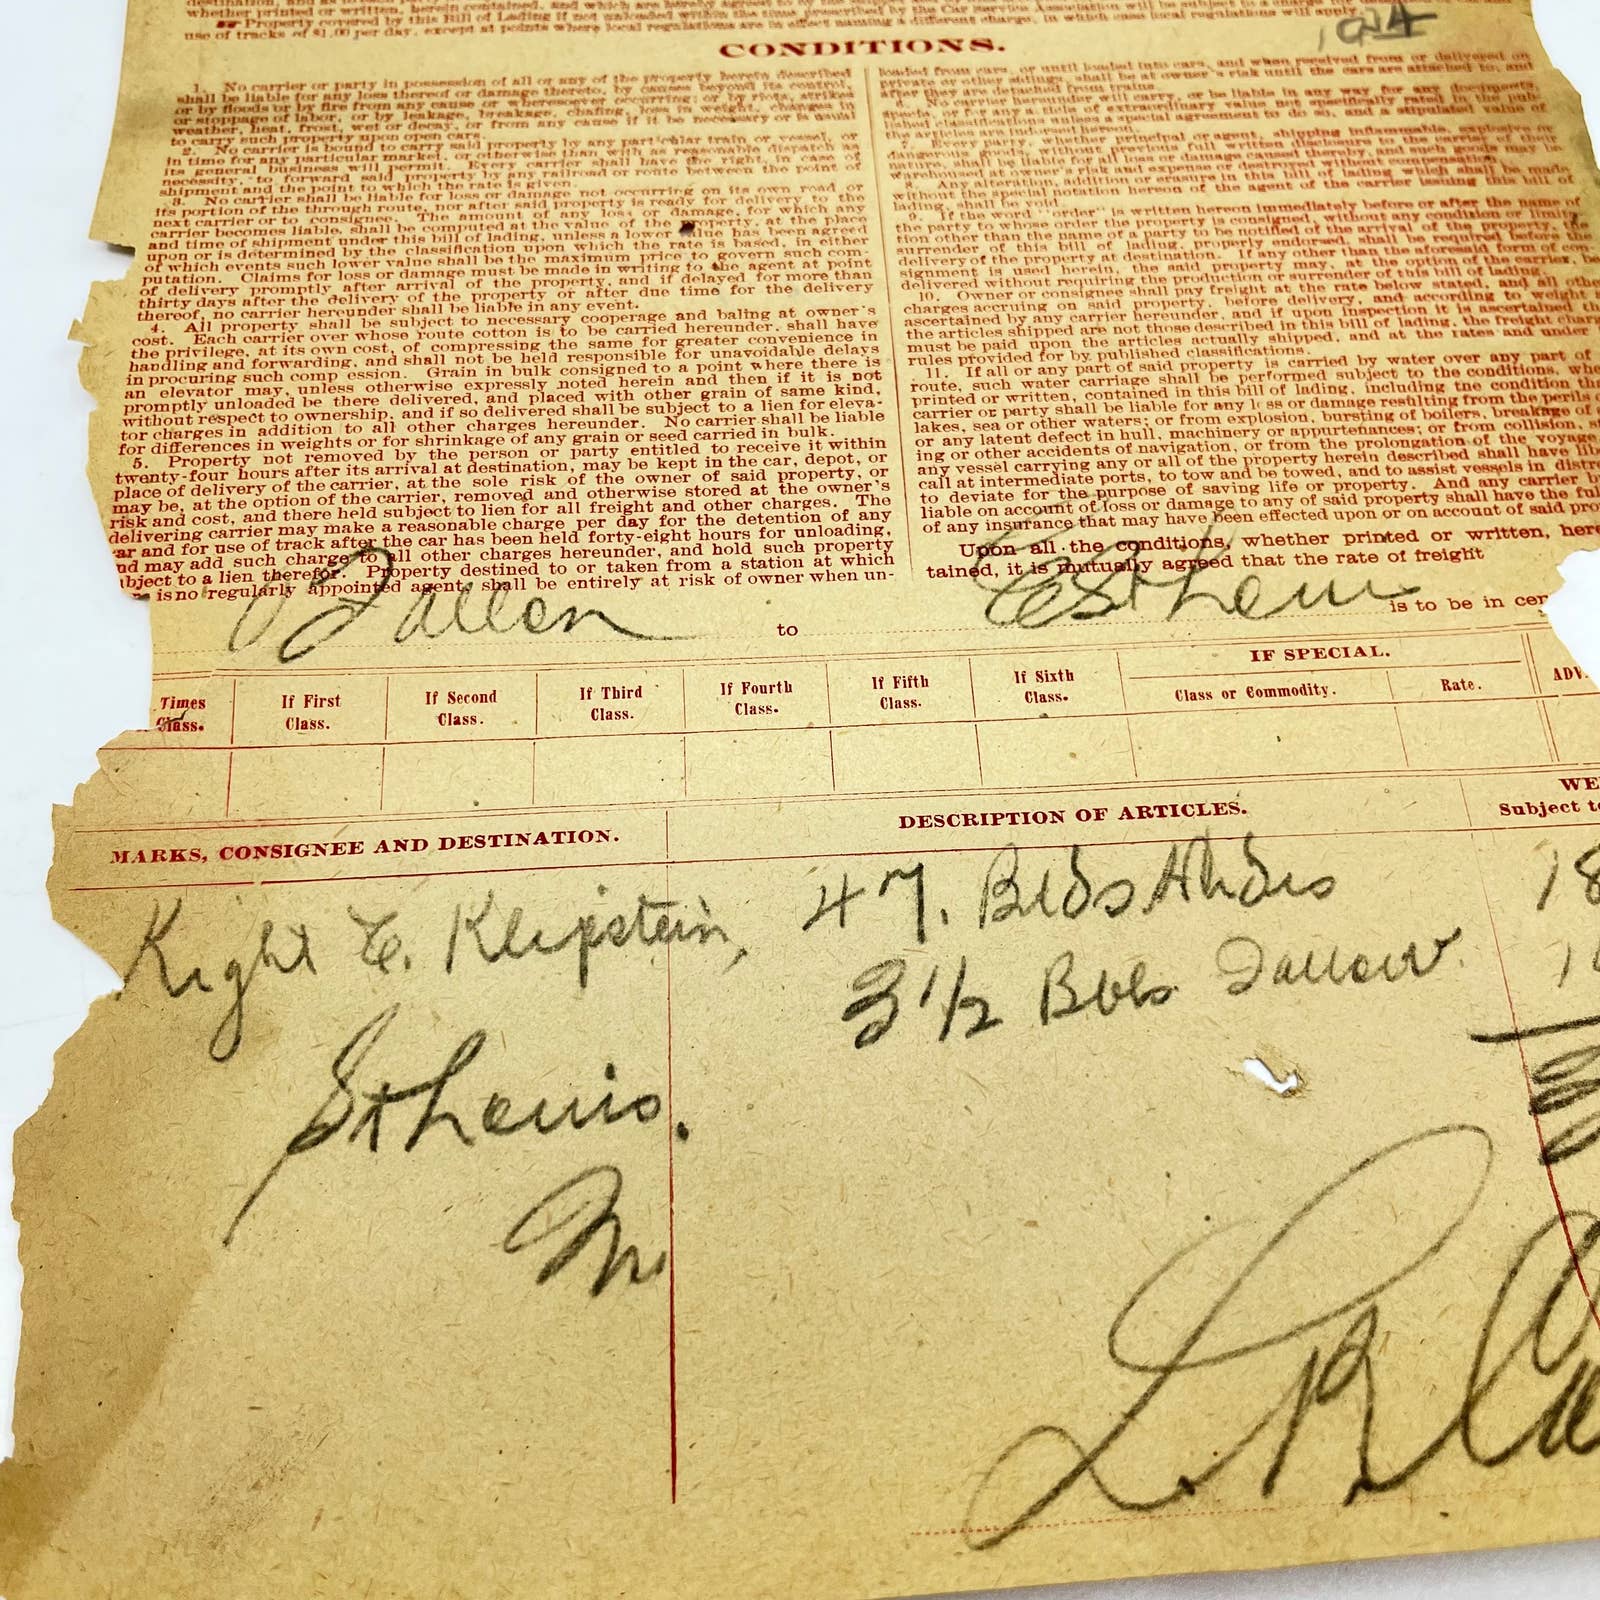 whether printed or written herein contained, and which are hereby agreed to by the
Property covered by this Bill of Lading if not unloaded within the time prescribed by the Car Service Association will be subject to a charge for
use of tracks of $1.00 per day, except at points where local regulations naming a different charge, in which case local regulations will apply
CONDITIONS.
1. No carrier or party in possession of all or any of the property herein described
shall be liable for any loss thereof or damage thereto, by causes beyond its control,
or by floods or by fire from any cause or wheresoever occurring; or by riots, strikes
or stoppage of labor, or by leakage, breakage, chafing, loss in weight, changes in
weather, heat, frost, wet or decay, or from any cause if it be necessary or is usual
to carry such property upon open cars.
2. No carrier is bound to carry said property by any particular train or vessel, or
in time for any particular market, or otherwise than with as reasonable dispatch as
its general business will permit. Every carrier shall have the right, in case of
necessity, to forward said property by any railroad or route between the point of
shipment and the point to which the rate is given.
3. No carrier shall be liable for loss or damage not occurring on its own road or
its portion of the through route, nor after said property is ready for delivery to the
next carrier or to consignee. The amount of any loss or damage, for which any
carrier becomes liable, shall be computed at the value of the property, at the place
and time of shipment under this bill of lading, unless a lower value has been agreed
upon or is determined by the classification upon which the rate is based, in either
of which events such lower value shall be the maximum price to govern such com-
putation. Claims for loss or damage must be made in writing to the agent at point
of delivery promptly after arrival of the property, and if delayed for more than
thirty days after the delivery of the property or after due time for the delivery
thereof, no carrier hereunder shall be liable in any event.
4. All property shall be subject to necessary cooperage and baling at owner's
cost. Each carrier over whose route cotton is to be carried hereunder, shall have
the privilege, at its own cost, of compressing the same for greater convenience in
handling and forwarding, and shall not be held responsible for unavoidable delays
in procuring such comp ession. Grain in bulk consigned to a point where there is
an elevator may, unless otherwise expressly noted herein and then if it is not
promptly unloaded be there delivered, and placed with other grain of same kind,
without respect to ownership, and if so delivered shall be subject to a lien for eleva-
tor charges in addition to all other charges hereunder. No carrier shall be liable
for differences in weights or for shrinkage of any grain or seed carried in bulk.
5. Property not removed by the person or party entitled to receive it within
twenty-four hours after its arrival at destination, may be kept in the car, depot, or
place of delivery of the carrier, at the sole risk of the owner of said property, or
may be, at the option of the carrier, removed and otherwise stored at the owner's
risk and cost, and there held subject to lien for all freight and other charges. The
delivering carrier may make a reasonable charge per day for the detention of any
ar and for use of track after the car has been held forty-eight hours for unloading,
nd may add such charge to all other charges hereunder, and hold such property
bject to a lien therefor. Property destined to or taken from a station at which
is no regularly appointed agent, shall be entirely at risk of owner when un-
loaded from cars, or until loaded into cars, and when received from or delivered on
private or other sidings, shall be at owner's risk until the cars are attached to, and
after they are detached from trains.
6. No carrier hereunder will carry, or be liable in any way for any documents,
specie, or for any articles of extraordinary value not specifically rated in the pub-
classifications unless a special agreement to do so, and a stipulated value of
the articles are indorsed hereon.
7. Every party, whether principal or agent, shipping inflammable, explosive or
dangerous goods, without previous full written disclosure to the carrier of their
nature, shall be liable for all loss or damage caused thereby, and such goods may be
warehoused at owner's risk and expense or destroyed without compensation.
8. Any alteration, addition or erasure in this bill of lading which shall be made
without the special notation hereon of the agent of the carrier issuing this bill of
lading, shall be void.
9. If the word "order" is written hereon immediately before or after the name of
the party to whose order the property is consigned, without any condition or limita-
tion other than the name of a party to be notified of the arrival of the property, the
surrender of this bill of lading, properly endorsed, shall be required before the
delivery of the property at destination. If any other than the aforesaid form of con
signment is used herein, the said property may, at the option of the carrier, be
delivered without requiring the production or surrender of this bill of lading.
10. Owner or consignee shall pay freight at the rate below stated, and all othe
charges accruing on said property, before delivery, and according to weight
ascertained by any carrier hereunder, and if upon inspection it is ascertained th
the articles shipped are not those described in this bill of lading, the freight charg
must be paid upon the articles actually shipped, and at the rates and under
rules provided for by published classifications.
11. If all or any part of said property is carried by water over any part of
route, such water carriage shall be performed subject to the conditions, whe
printed or written, contained in this bill of lading, including the condition tha
carrier or party shall be liable for any loss or damage resulting from the perils o
lakes, sea or other waters; or from explosion, bursting of boilers, breakage of
or any latent defect in hull, machinery or appurtenances; or from collision, st
ing or other accidents of navigation, or from the prolongation of the voyage.
any vessel carrying any or all of the property herein described shall have libe
call at intermediate ports, to tow and be towed, and to assist vessels in distre
to deviate for the purpose of saving life or property. And any carrier by
liable on account of loss or damage to any of said property shall have the ful
of any insurance that may have been effected upon or on account of said prop
Upon all the conditions, whether printed or written, here
tained, it is mutually agreed that the rate of freight
to
is to be in cen
Times Class.
If First Class.
If Second Class.
If Third Class.
If Fourth Class.
If Fifth Class.
If Sixth Class.
IF SPECIAL.
Class or Commodity.
Rate.
ADV.
MARKS, CONSIGNEE AND DESTINATION.
DESCRIPTION OF ARTICLES.
WE
Subject to
Klipstein, 47. Blds Hides 18
3 1/2 Bbls Tallow. 1
St Louis.
Mo
L R